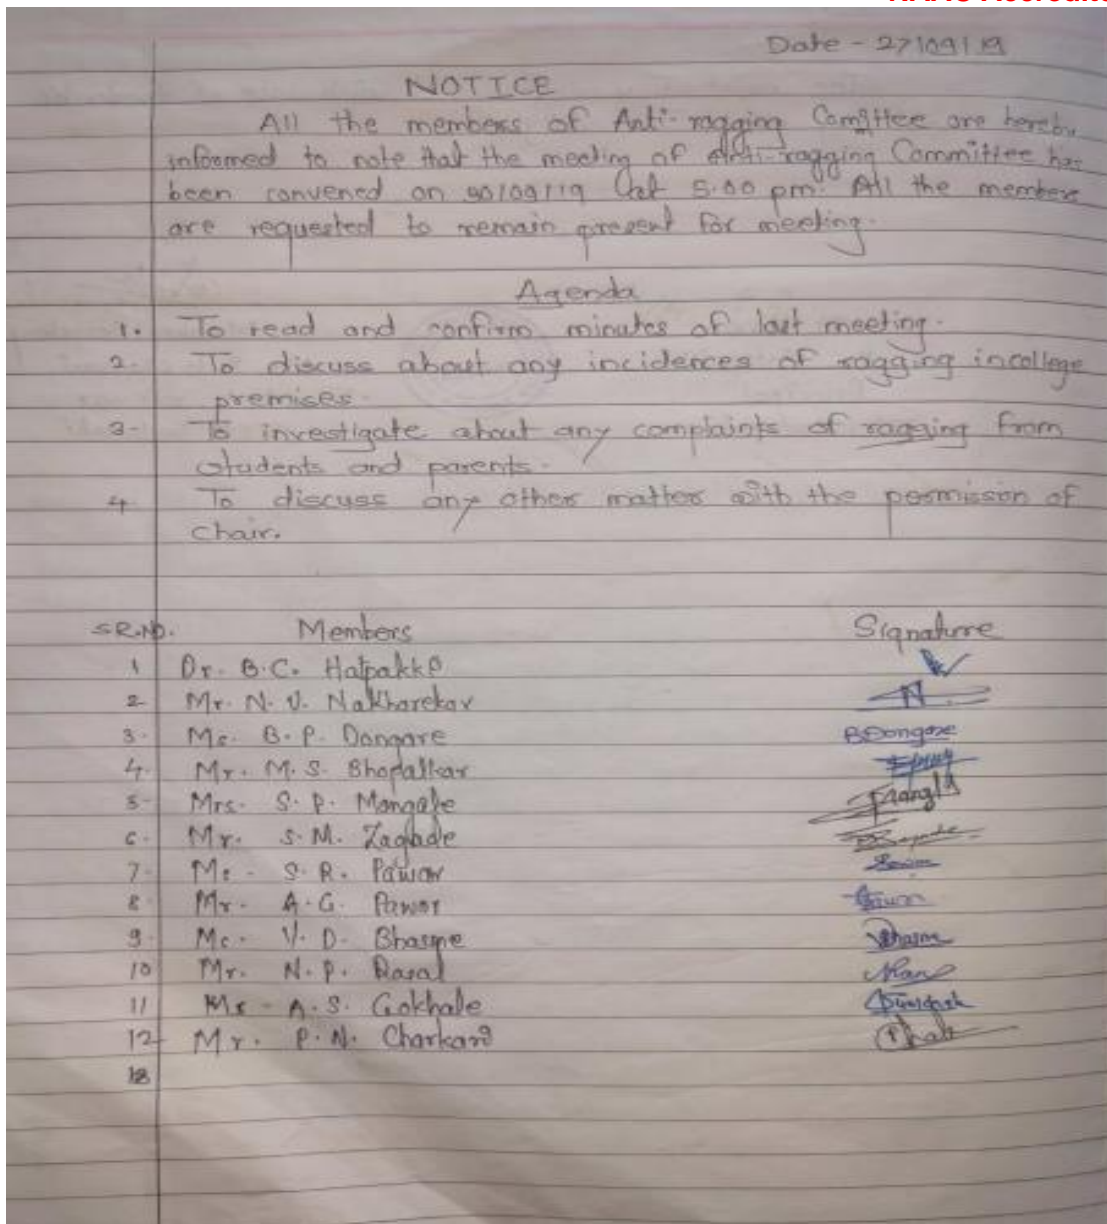 Date - 27/09/19
NOTICE
All the members of Anti-ragging Committee are hereby
informed to note that the meeting of Anti-ragging Committee has
been convened on 30/09/19 at 5.00 pm. All the members
are requested to remain present for meeting.
Agenda
1. To read and confirm minutes of last meeting.
2. To discuss about any incidences of ragging incollege
premises.
3- To investigate about any complaints of ragging from
students and parents.
4. To discuss any other matter with the permission of
Chair.
SR.NO. Members Signature
1 Dr. B.C. Hatpakke
2- Mr. N. V. Nakharekar
3. Ms. B. P. Dongare BDongare
4. Mr. M. S. Bhopalkar
5- Mrs. S. P. Mangale
6. Mr. S. M. Zagade
7. Ms. S. R. Pawar
8. Mr. A. G. Pawar
9. Ms. V. D. Bhasme
10 Mr. N. P. Rasal
11 Ms. A. S. Gokhale
12 Mr. P. N. Charkari
13